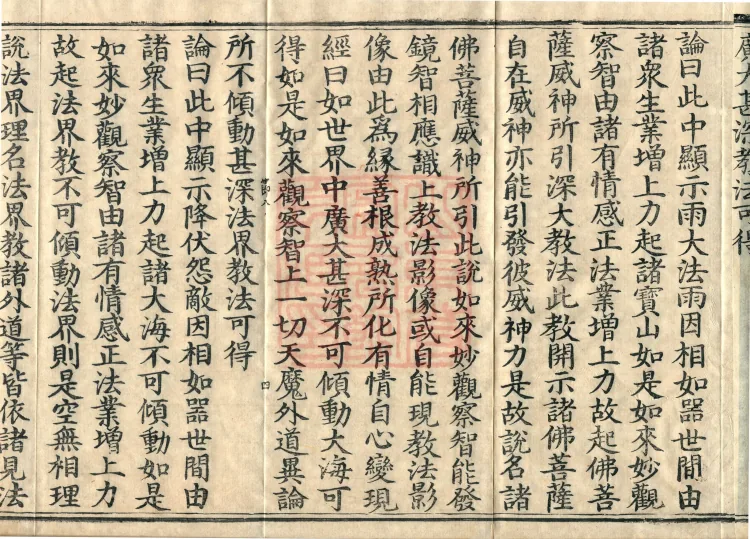 廣大甚深教法可得
論曰此中顯示雨大法雨因相如器世間由
諸衆生業增上力起諸寶山如是如來妙觀
察智由諸有情感正法業增上力故起佛菩
薩威神所引深大教法此教開示諸佛菩薩
自在威神亦能引發彼威神力是故說名諸
佛菩薩威神所引此說如來妙觀察智能發
鏡智相應識上教法影像或自能現教法影
像由此爲緣善根成熟所化有情自心變現
經曰如世界中廣大甚深不可傾動大海可
得如是如來觀察智上一切天魔外道異論
所不傾動甚深法界教法可得
論曰此中顯示降伏怨敵因相如器世間由
諸衆生業增上力起諸大海不可傾動如是
如來妙觀察智由諸有情感正法業增上力
故起法界教不可傾動法界則是空無相理
說法界理名法界教諸外道等皆依諸見法
四